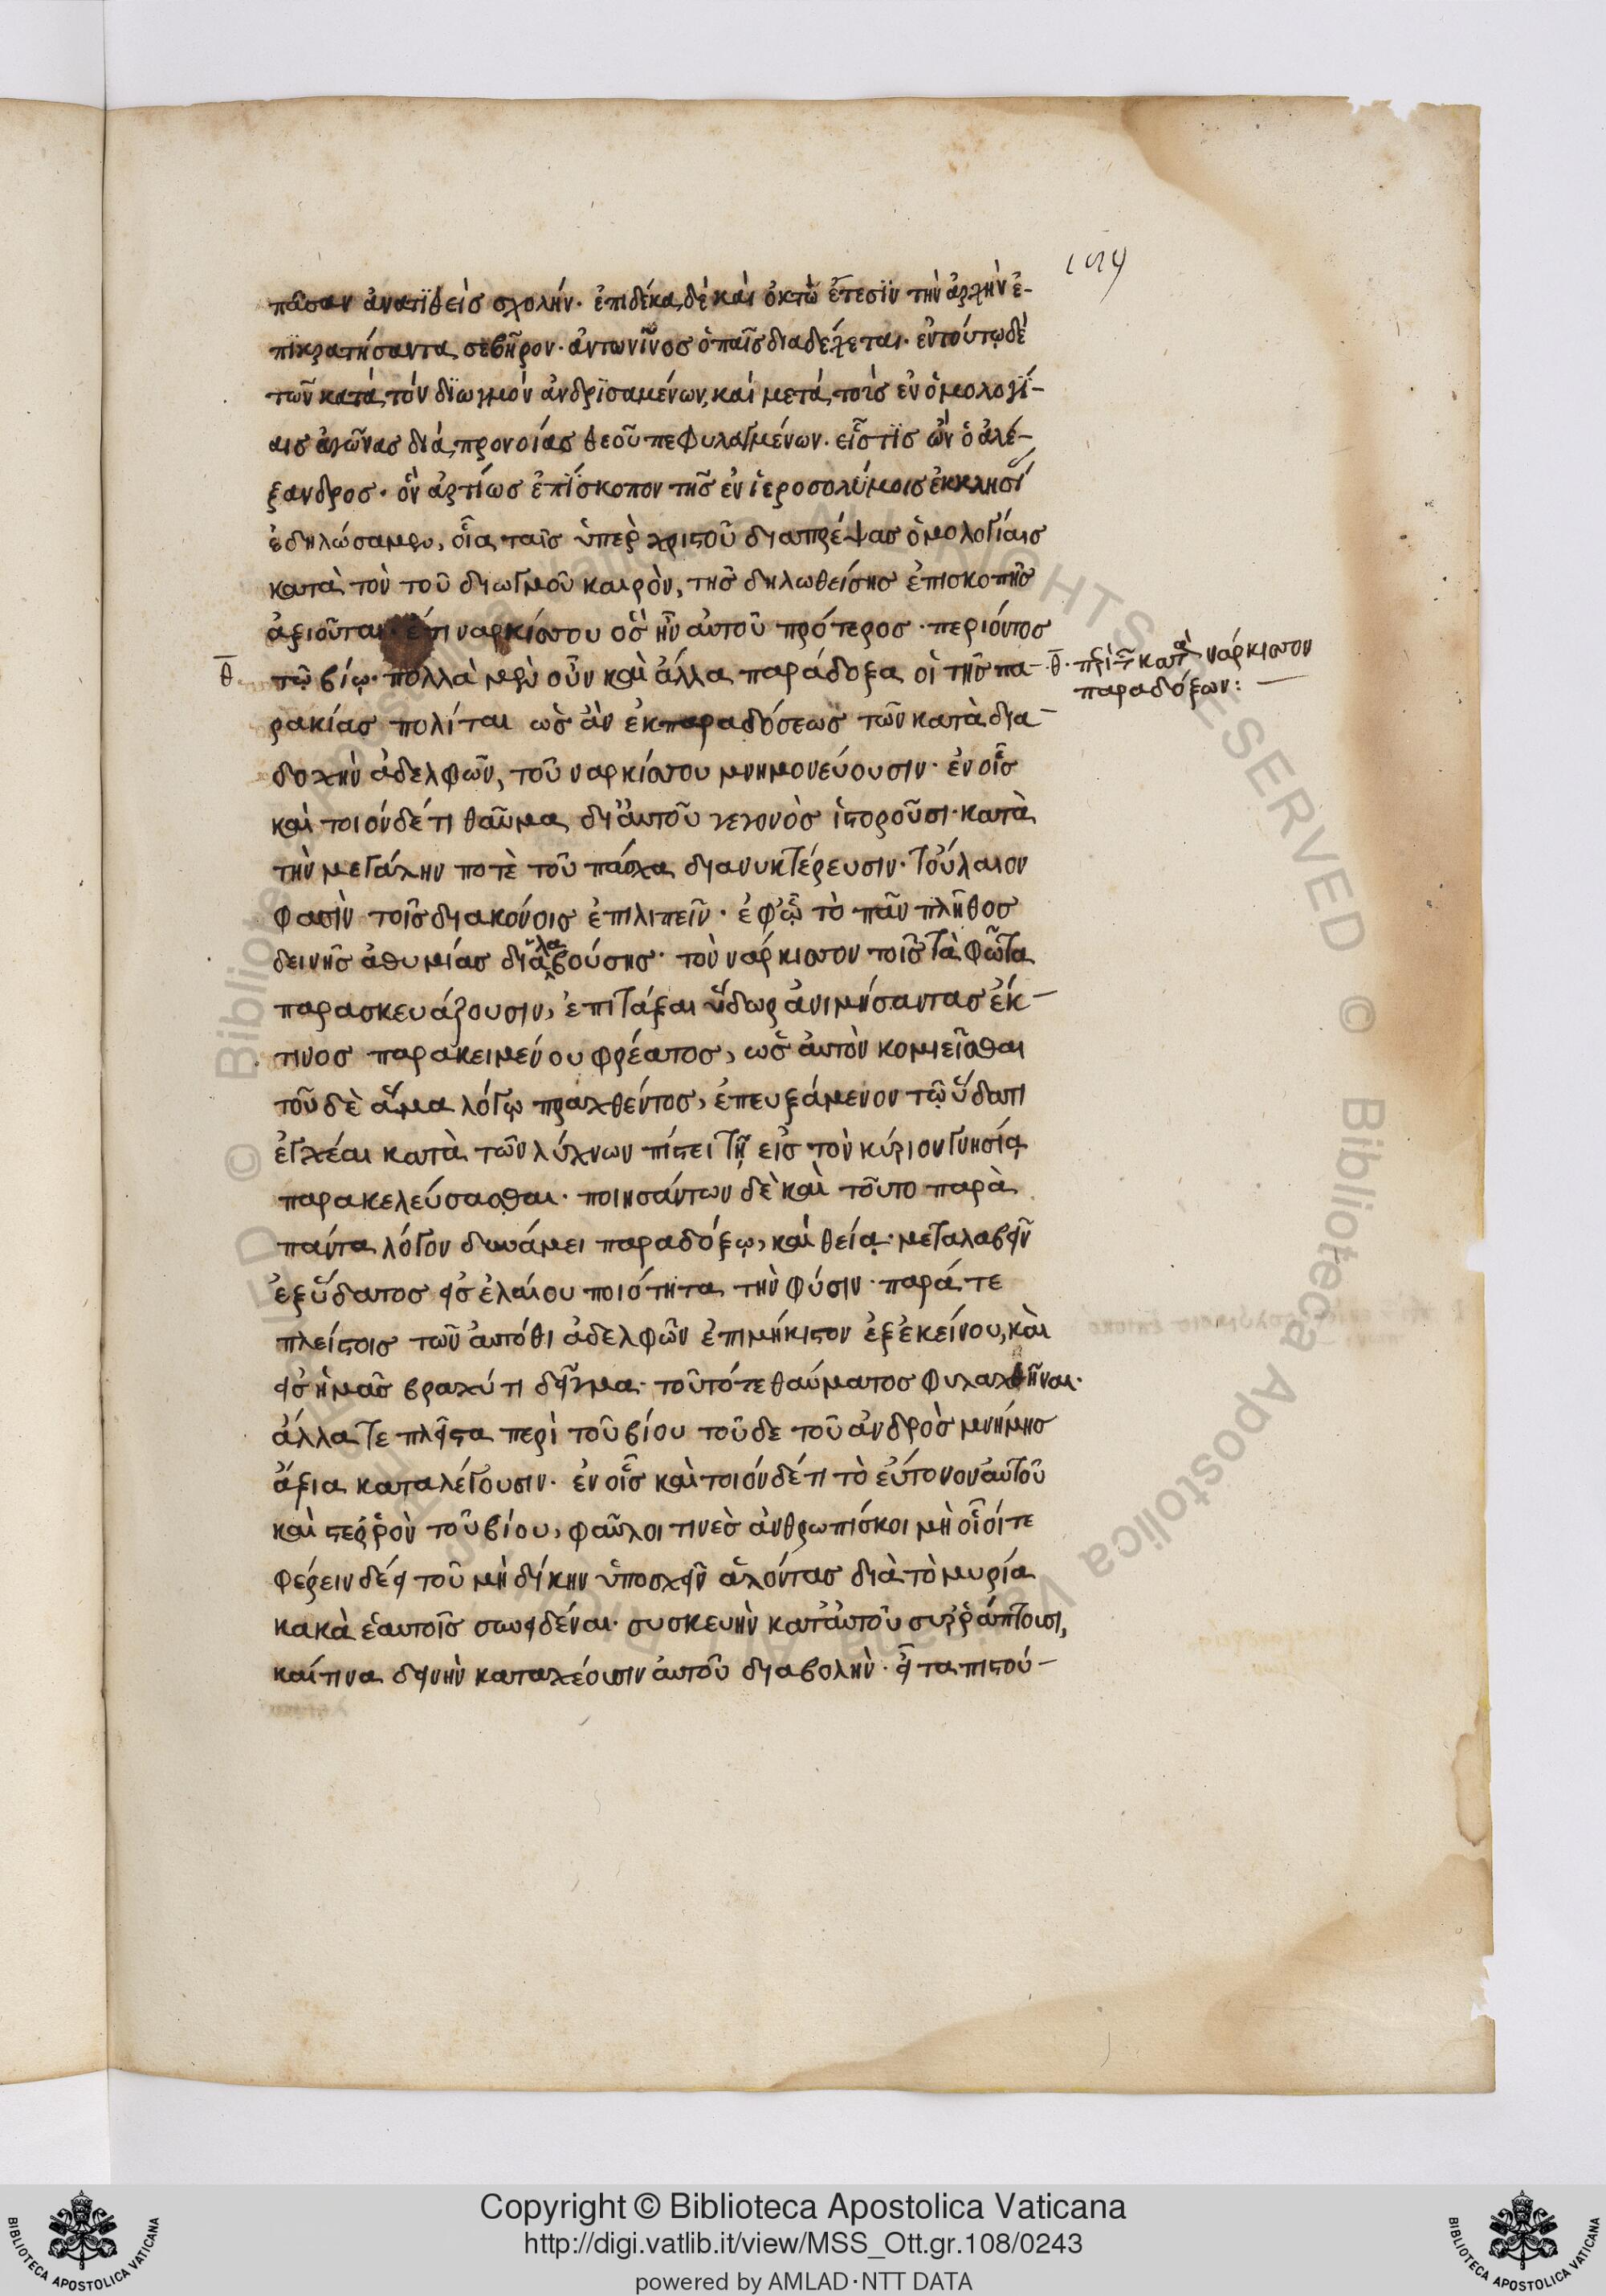 πᾶσαν ἀνατϊθεὶς σχολήν· ἐπιδέκα δὲ καὶ ὀκτὼ ἔτεσϊν τὴν ἀρχὴν ἐ-
πϊκρατήσαντα σεβῆρον· ἀντωνῖνος ὁ παῖς διαδέχεται· ἐντούτῳ δὲ
τῶν κατὰ τὸν δϊωγμὸν ἀνδρϊσαμένων, καὶ μετὰ τοὺς ἐν ὁμολογΐ-
αις ἀγῶνας διὰ προνοίας θεοῦ πεφυλαγμένων· εἷς τϊς ὢν ὁ ἀλέ-
ξανδρος· ὃν ἀρτίως ἐπΐσκοπον τῆς ἐν ἱεροσολύμοις ἐκκλησΐ
ἐδηλώσαμεν, οἷα ταῖς ὑπὲρ χριστοῦ διαπρέψας ὁμολογίαις
κατὰ τὸν τοῦ διωγμοῦ καιρὸν, τῆς δηλωθείσης ἐπισκοπῆς
ἀξιοῦται· ἔτι ναρκίσσου ὃς ἦν αὐτοῦ πρότερος· περιόντος
θ τῷ βίῳ· πολλὰ μὲν οὖν καὶ ἄλλα παράδοξα οἱ τῆς πα-
θ· περὶ τῶν κατὰ νάρκισσον
παραδόξων:
ροικίας πολίται ὡς ἂν ἐκπαραδόσεως τῶν κατὰ δια-
δοχὴν ἀδελφῶν, τοῦ ναρκίσσου μνημονεύουσιν· ἐν οἷς
καὶ τοιόνδέ τι θαῦμα δι' αὐτοῦ γεγονὸς ἱστοροῦσι· κατὰ
τὴν μεγάλην ποτὲ τοῦ πάσχα διανυκτέρευσιν· τοὔλαιον
φασὶν τοῖς διακόνοις ἐπιλιπεῖν· ἐφ' ᾧ τὸ πᾶν πλῆθος
δεινῆς ἀθυμίας διαλαβούσης· τὸν νάρκισσον τοῖς τὰ φῶτα
παρασκευάζουσιν, ἐπιτάξαι ὕδωρ ἀνιμήσαντας ἔκ-
τινος παρακειμένου φρέατος, ὡς αὐτὸν κομιεῖσθαι
τοῦ δὲ ἅμα λόγῳ πραχθέντος, ἐπευξάμενον τῷ ὕδατι
ἐγχέαι κατὰ τῶν λύχνων πίστει τῇ εἰς τὸν κύριον γνησίᾳ
παρακελεύσασθαι· ποιησάντων δὲ καὶ τοῦτο παρὰ
πάντα λόγον δυνάμει παραδόξῳ, καὶ θείᾳ· μεταλαβεῖν
ἐξ ὕδατος εἰς ἐλαίου ποιότητα τὴν φύσιν· παρά τε
πλείστοις τῶν αὐτόθι ἀδελφῶν ἐπιμήκιστον ἐξ ἐκείνου, καὶ
εἰς ἡμᾶς βραχύ τι δεῖγμα· τοῦ τότε θαύματος φυλαχθῆναι·
ἄλλα τε πλεῖστα περὶ τοῦ βίου τοῦδε τοῦ ἀνδρὸς μνήμης
ἄξια καταλέγουσιν· ἐν οἷς καὶ τοιόνδέ τι τὸ εὔτονον αὐτοῦ
καὶ στερρὸν τοῦ βίου, φαῦλοι τινὲς ἀνθρωπίσκοι μὴ οἷοί τε
φέρειν δέει τοῦ μὴ δίκην ὑποσχεῖν ἁλόντας διὰ τὸ μυρία
κακὰ ἑαυτοῖς συνειδέναι· συσκευὴν κατ' αὐτοῦ συρράπτουσι,
καί τινα δεινὴν καταχέουσιν αὐτοῦ διαβολὴν· εἶτα πιστού-
Copyright © Biblioteca Apostolica Vaticana
http://digi.vatlib.it/view/MSS_Ott.gr.108/0243
powered by AMLAD·NTT DATA
BIBLIOTECA APOSTOLICA VATICANA
BIBLIOTECA APOSTOLICA VATICANA